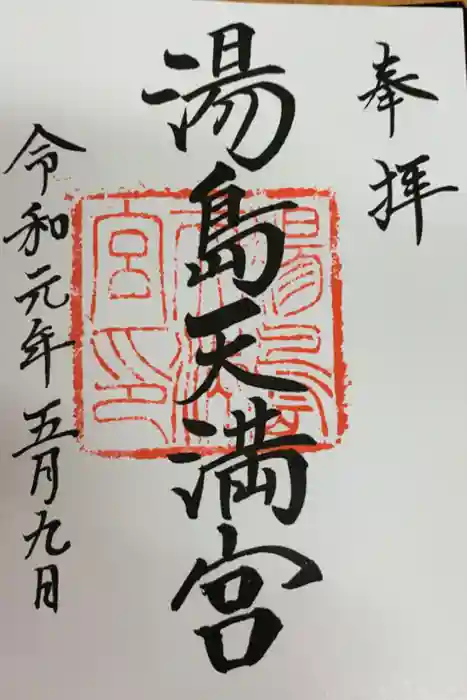 奉拝
湯島天満宮
令和元年五月九日